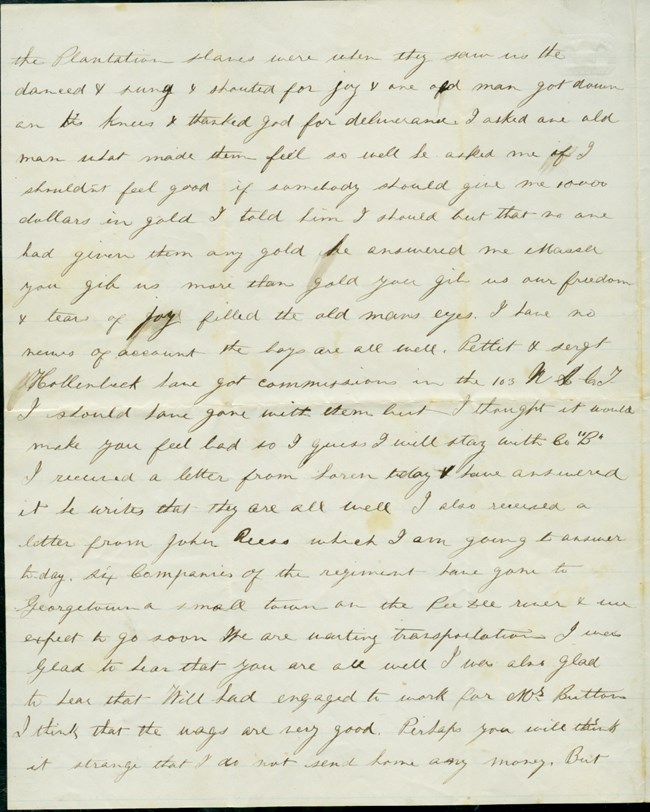 the Plantation slaves were when they saw us the
danced & sung & shouted for joy & one old man got down
on his knees & thanked god for deliverance. I asked one old
man what made them feel so well he asked me if I
shouldnt feel good if somebody should give me 10000
dollars in gold I told him I should but that no one
had given them any gold he answered me Massa
you gib us more than gold you gib us our freedom
& tears of joy filled the old mans eyes. I have no
news of account the boys are all well. Pettit & sergt
Hollenbeck have got commissions in the 103 U S C T
I should have gone with them but I thought it would
make you feel bad so I guess I will stay with Co "B"
I received a letter from Loren today & have answered
it he writes that they are all well I also received a
letter from John Reess which I am going to answer
to day. Six Companies of the regiment have gone to
Georgetown a small town on the Pee Dee river & we
expect to go soon We are waiting transportation I was
Glad to hear that you are all well I was also glad
to hear that Will had engaged to work for Mrs Button
I think that the wags are very good. Perhaps you will think
it strange that I do not send home any money. But